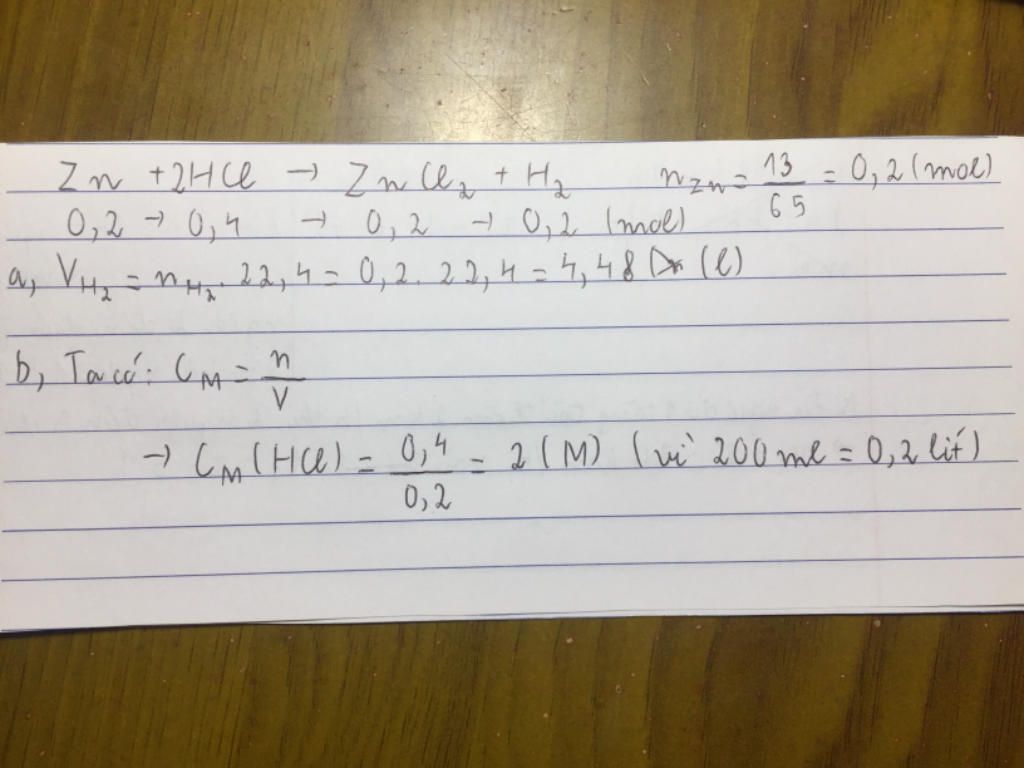 Zn + 2HCl → ZnCl₂ + H₂ n_Zn = 13/65 = 0,2 (mol)
0,2 → 0,4 → 0,2 → 0,2 (mol)
a, V_H₂ = n_H₂ . 22,4 = 0,2 . 22,4 = 4,48 (l)
b, Ta có: C_M = n/V
→ C_M (HCl) = 0,4/0,2 = 2 (M) (vì 200 ml = 0,2 lít)